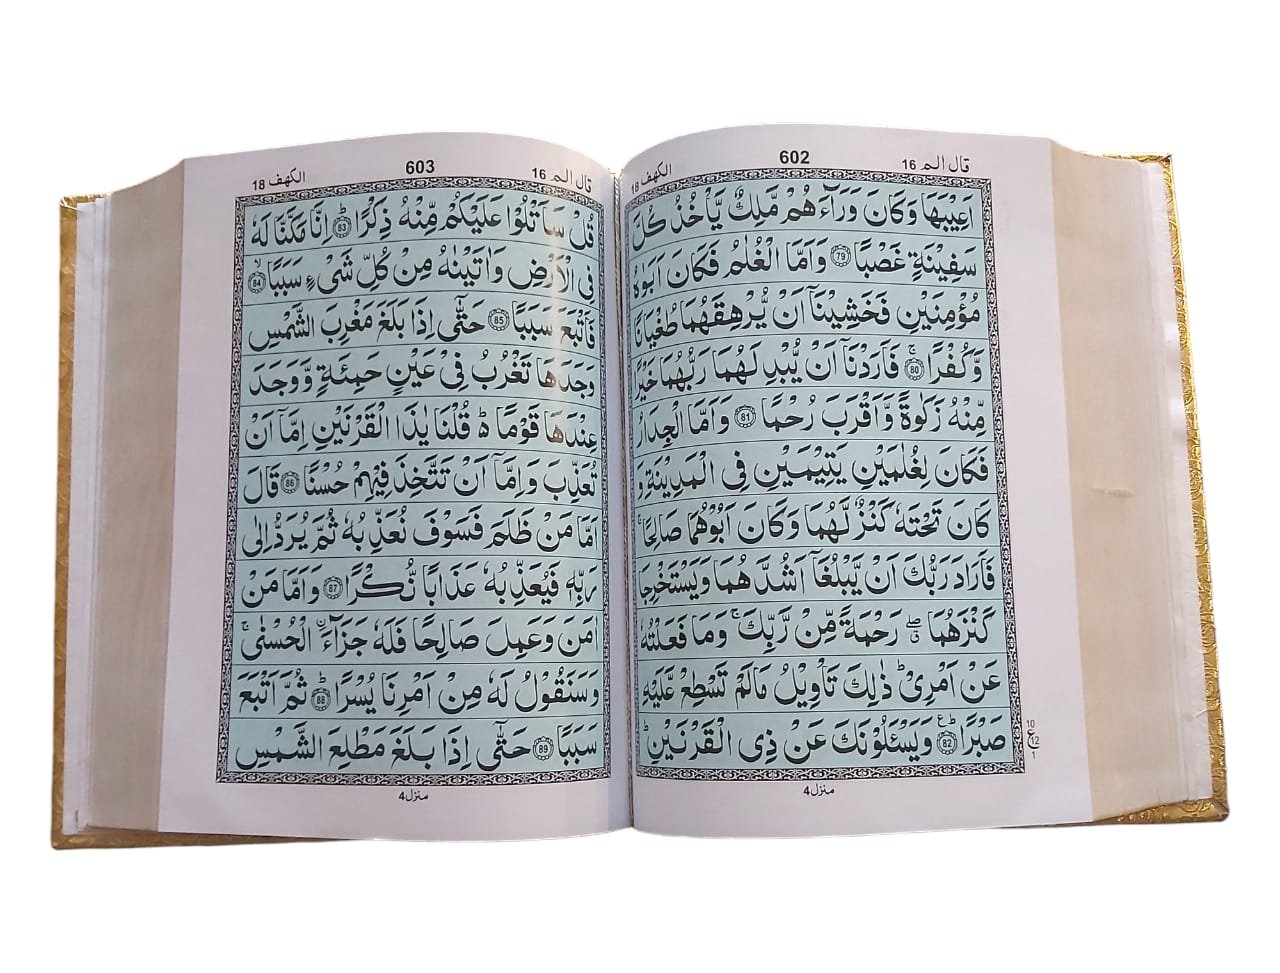 قال الم 16
602
الكهف 18
اَعِيْبَهَا وَكَانَ وَرَآءَهُمْ مَّلِكٌ يَّاْخُذُ كُلَّ
سَفِيْنَةٍ غَصْبًا 79 وَاَمَّا الْغُلٰمُ فَكَانَ اَبَوٰهُ
مُؤْمِنَيْنِ فَخَشِيْنَاۤ اَنْ يُّرْهِقَهُمَا طُغْيَانًا
وَّكُفْرًا ۚ 80 فَاَرَدْنَاۤ اَنْ يُّبْدِلَهُمَا رَبُّهُمَا خَيْرًا
مِّنْهُ زَكٰوةً وَّاَقْرَبَ رُحْمًا 81 وَاَمَّا الْجِدَارُ
فَكَانَ لِغُلٰمَيْنِ يَتِيْمَيْنِ فِى الْمَدِيْنَةِ وَ
كَانَ تَحْتَهٗ كَنْزٌ لَّهُمَا وَكَانَ اَبُوْهُمَا صَالِحًا ۚ
فَاَرَادَ رَبُّكَ اَنْ يَّبْلُغَاۤ اَشُدَّهُمَا وَيَسْتَخْرِجَا
كَنْزَهُمَا ۖق رَحْمَةً مِّنْ رَّبِّكَ ۚ وَمَا فَعَلْتُهٗ
عَنْ اَمْرِىْ ؕ ذٰلِكَ تَاْوِيْلُ مَا لَمْ تَسْطِعْ عَّلَيْهِ
صَبْرًا ؕع 82 وَيَسْـَٔلُوْنَكَ عَنْ ذِى الْقَرْنَيْنِ ؕ
10
ع 12
1
منزل 4
قال الم 16
603
الكهف 18
قُلْ سَاَتْلُوْا عَلَيْكُمْ مِّنْهُ ذِكْرًا ؕ 83 اِنَّا مَكَّنَّا لَهٗ
فِى الْاَرْضِ وَاٰتَيْنٰهُ مِنْ كُلِّ شَىْءٍ سَبَبًا ۙ 84
فَاَتْبَعَ سَبَبًا 85 حَتّٰۤى اِذَا بَلَغَ مَغْرِبَ الشَّمْسِ
وَجَدَهَا تَغْرُبُ فِىْ عَيْنٍ حَمِئَةٍ وَّوَجَدَ
عِنْدَهَا قَوْمًا ؕ۬ قُلْنَا يٰذَا الْقَرْنَيْنِ اِمَّاۤ اَنْ
تُعَذِّبَ وَاِمَّاۤ اَنْ تَتَّخِذَ فِيْهِمْ حُسْنًا 86 قَالَ
اَمَّا مَنْ ظَلَمَ فَسَوْفَ نُعَذِّبُهٗ ثُمَّ يُرَدُّ اِلٰى
رَبِّهٖ فَيُعَذِّبُهٗ عَذَابًا نُّكْرًا 87 وَاَمَّا مَنْ
اٰمَنَ وَعَمِلَ صَالِحًا فَلَهٗ جَزَآءَ ۨالْحُسْنٰى ۚ
وَسَنَقُوْلُ لَهٗ مِنْ اَمْرِنَا يُسْرًا ؕ 88 ثُمَّ اَتْبَعَ
سَبَبًا 89 حَتّٰۤى اِذَا بَلَغَ مَطْلِعَ الشَّمْسِ
منزل 4